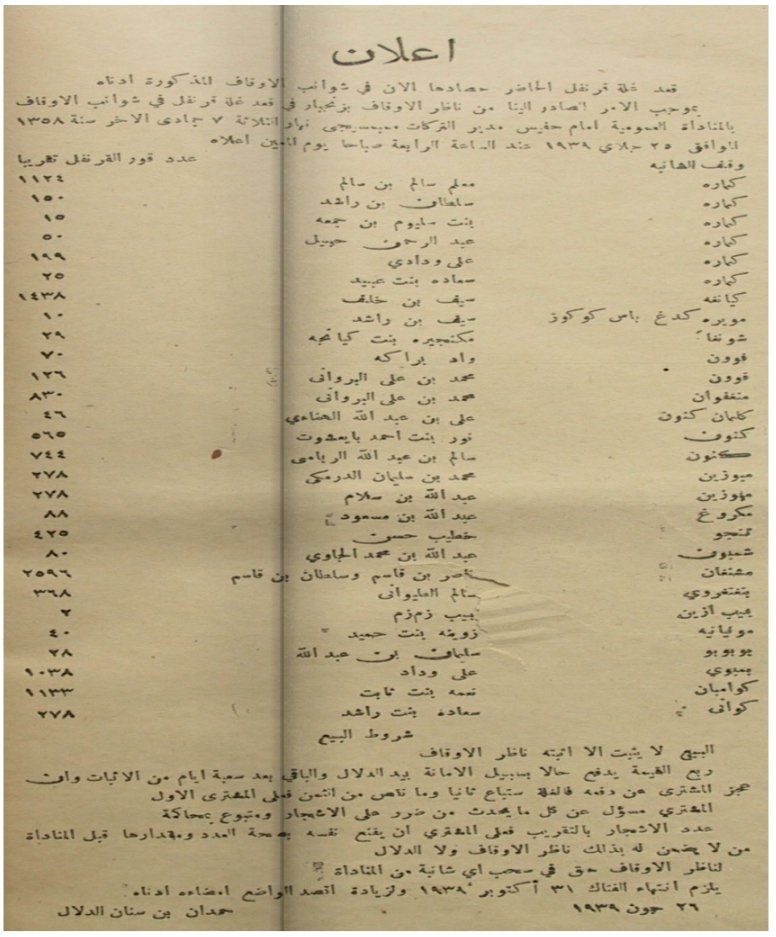 اعلان
قعد غلة قرنفل الحاضر حصادها الان في شوانب الاوقاف المذكورة ادناه
بموجب الامر الصادر الينا من ناظر الاوقاف بزنجبار في قعد غلة قرنفل في شوانب الاوقاف
بالمناداة العمومية امام حفيس مدير التركات ممبسيجي نهار الثلاثة ٧ جمادى الاخر سنة ١٣٥٨
الموافق ٢٥ جلاي ١٩٣٩ عند الساعة الرابعة صباحا يوم المعين اعلاه
وقف الشانبه عدد قور القرنفل تقريبا
كماره معلم سالم بن سالم ١١٢٤
كماره سلطان بن راشد ١٥٠
كماره بنت سليوم بن جمعه ١٥
كماره عبد الرحمن حبيل ٥٠
كماره على ودادي ١٩٩
كماره سعاده بنت عبيد ٢٥
كيانغه سيف بن خلف ١٤٣٨
مويره كدغ باس كوكوز سيف بن راشد ١٠
شونفا مكنجيره بنت كيانجه ٢٩
قوون واد براكه ٧٠
قوون محمد بن على البروانى ١٢٦
منغفوان محمد بن على البروانى ٨٣٠
كلمان كنون على بن عبد الله الهناءي ٤٦
كنون نور بنت احمد بايعشوت ٥٦٥
كنون سالم بن عبد الله الريامى ٧٤٤
ميوزين محمد بن سليمان الدرمكى ٢٧٨
مهوزين عبد الله بن سلام ٢٧٨
مكروغ عبد الله بن مسعود ٨٨
تمنجو خطيب حسن ٤٢٥
شمبون عبد الله بن محمد الجاوي ٨٠
مشنغان ناصر بن قاسم وسلطان بن قاسم ٢٥٩٦
بتغنغروي سالم العليوانى ٣٦٨
بيب ازين بيب زمزم ٢
موغيانيه زوينه بنت حميد ٤٠
بوبوبو سليمان بن عبد الله ٢٨
بمبوي على وداد ١٠٣٨
كوامبان نعمه بنت ثابت ١١٣٣
كوانى سعاده بنت راشد ٢٧٨
شروط البيع
البيع لا يثبت الا اثبته ناظر الاوقاف
ربع القيمة يدفع حالا بسبيل الامانة بيد الدلال والباقي بعد سعبة ايام من الاثبات وان
عجز المشترى عن دفعه فالغلة ستباع ثانيا وما ناص من الثمن فعلى المشترى الاول
المشتري مسؤل عن كل ما يحدث من ضرر على الاشجار ومتبوع بمحاكة
عدد الاشجار بالتقريب فعلى المشتري ان يقنع نفسه بصحة العدد ومقدارها قبل المناداة
من لا يضمن له بذلك ناظر الاوقاف ولا الدلال
لناظر الاوقاف حق في سحب اي شانبة من المناداة
يلزم انتهاء الفناك ٣١ أكتوبر ١٩٣٩ ولزيادة اقصد الواضع امضاءه ادناه
٢٦ جون ١٩٣٩ حمدان بن سنان الدلال